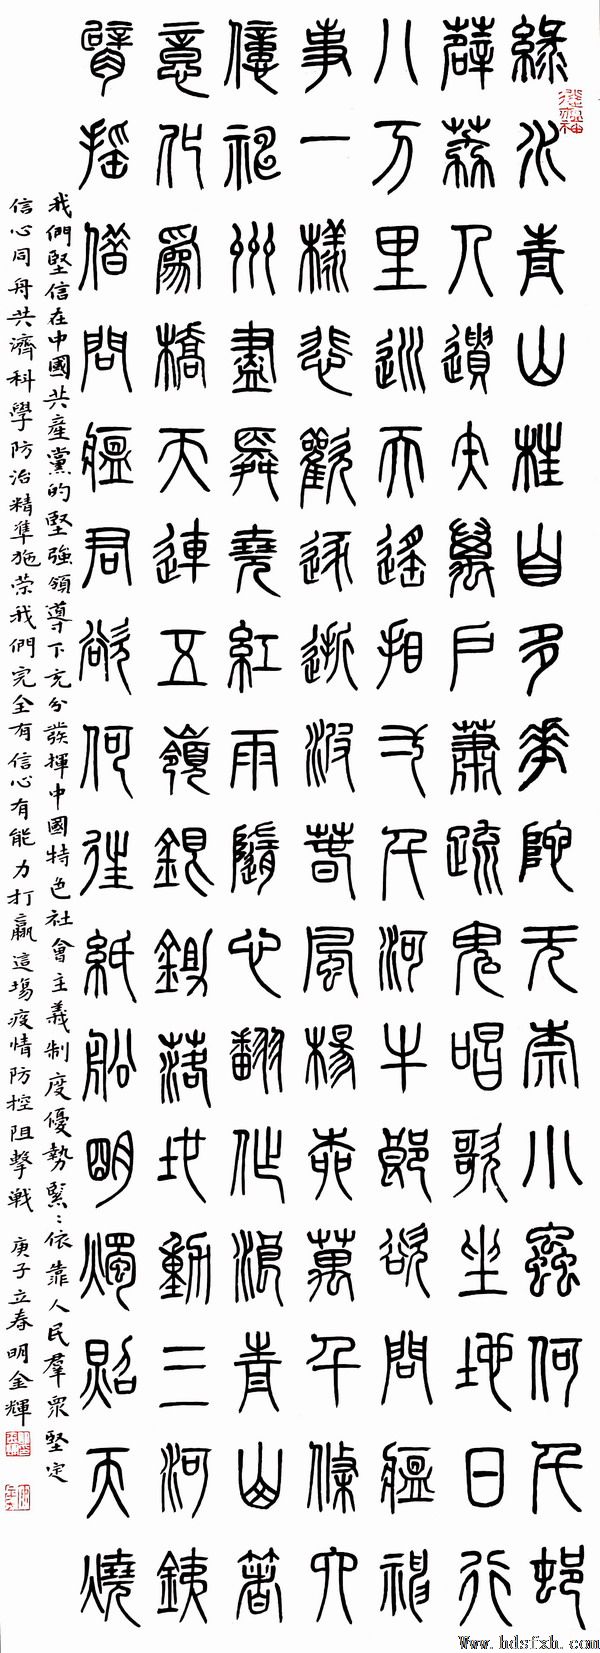 綠水青山枉自多華陀无奈小蟲何千邨
薜荔人遺矢萬戶蕭疏鬼唱歌坐地日行
八万里巡天遙看一千河牛郎欲問瘟神
事一樣悲歡逐逝波春風楊柳萬千條六
億神州盡舜堯紅雨隨心翻作浪青山著
意化爲橋天連五嶺銀鋤落地動三河鐵
臂搖借問瘟君欲何往紙船明燭照天燒
我們堅信在中國共產黨的堅強領導下充分發揮中國特色社會主義制度優勢緊:依靠人民羣眾堅定
信心同舟共濟科學防治精準施策我們完全有信心有能力打贏這場疫情防控阻擊戰 庚子立春明金輝
Www.hdsfxh.com